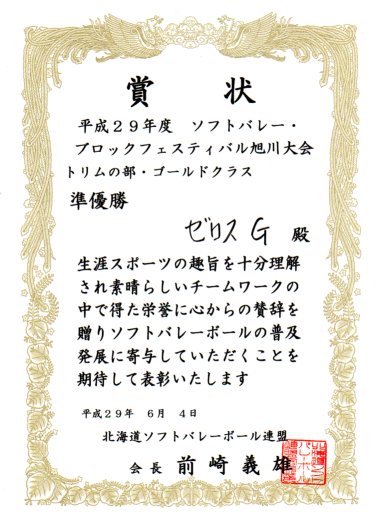 賞状
平成29年度 ソフトバレー・
ブロックフェスティバル旭川大会
トリムの部・ゴールドクラス
準優勝
ゼリスG 殿
生涯スポーツの趣旨を十分理解
され素晴らしいチームワークの
中で得た栄誉に心からの賛辞を
贈りソフトバレーボールの普及
発展に寄与していただくことを
期待して表彰いたします
平成29年 6月 4日
北海道ソフトバレーボール連盟
会長 前崎義雄